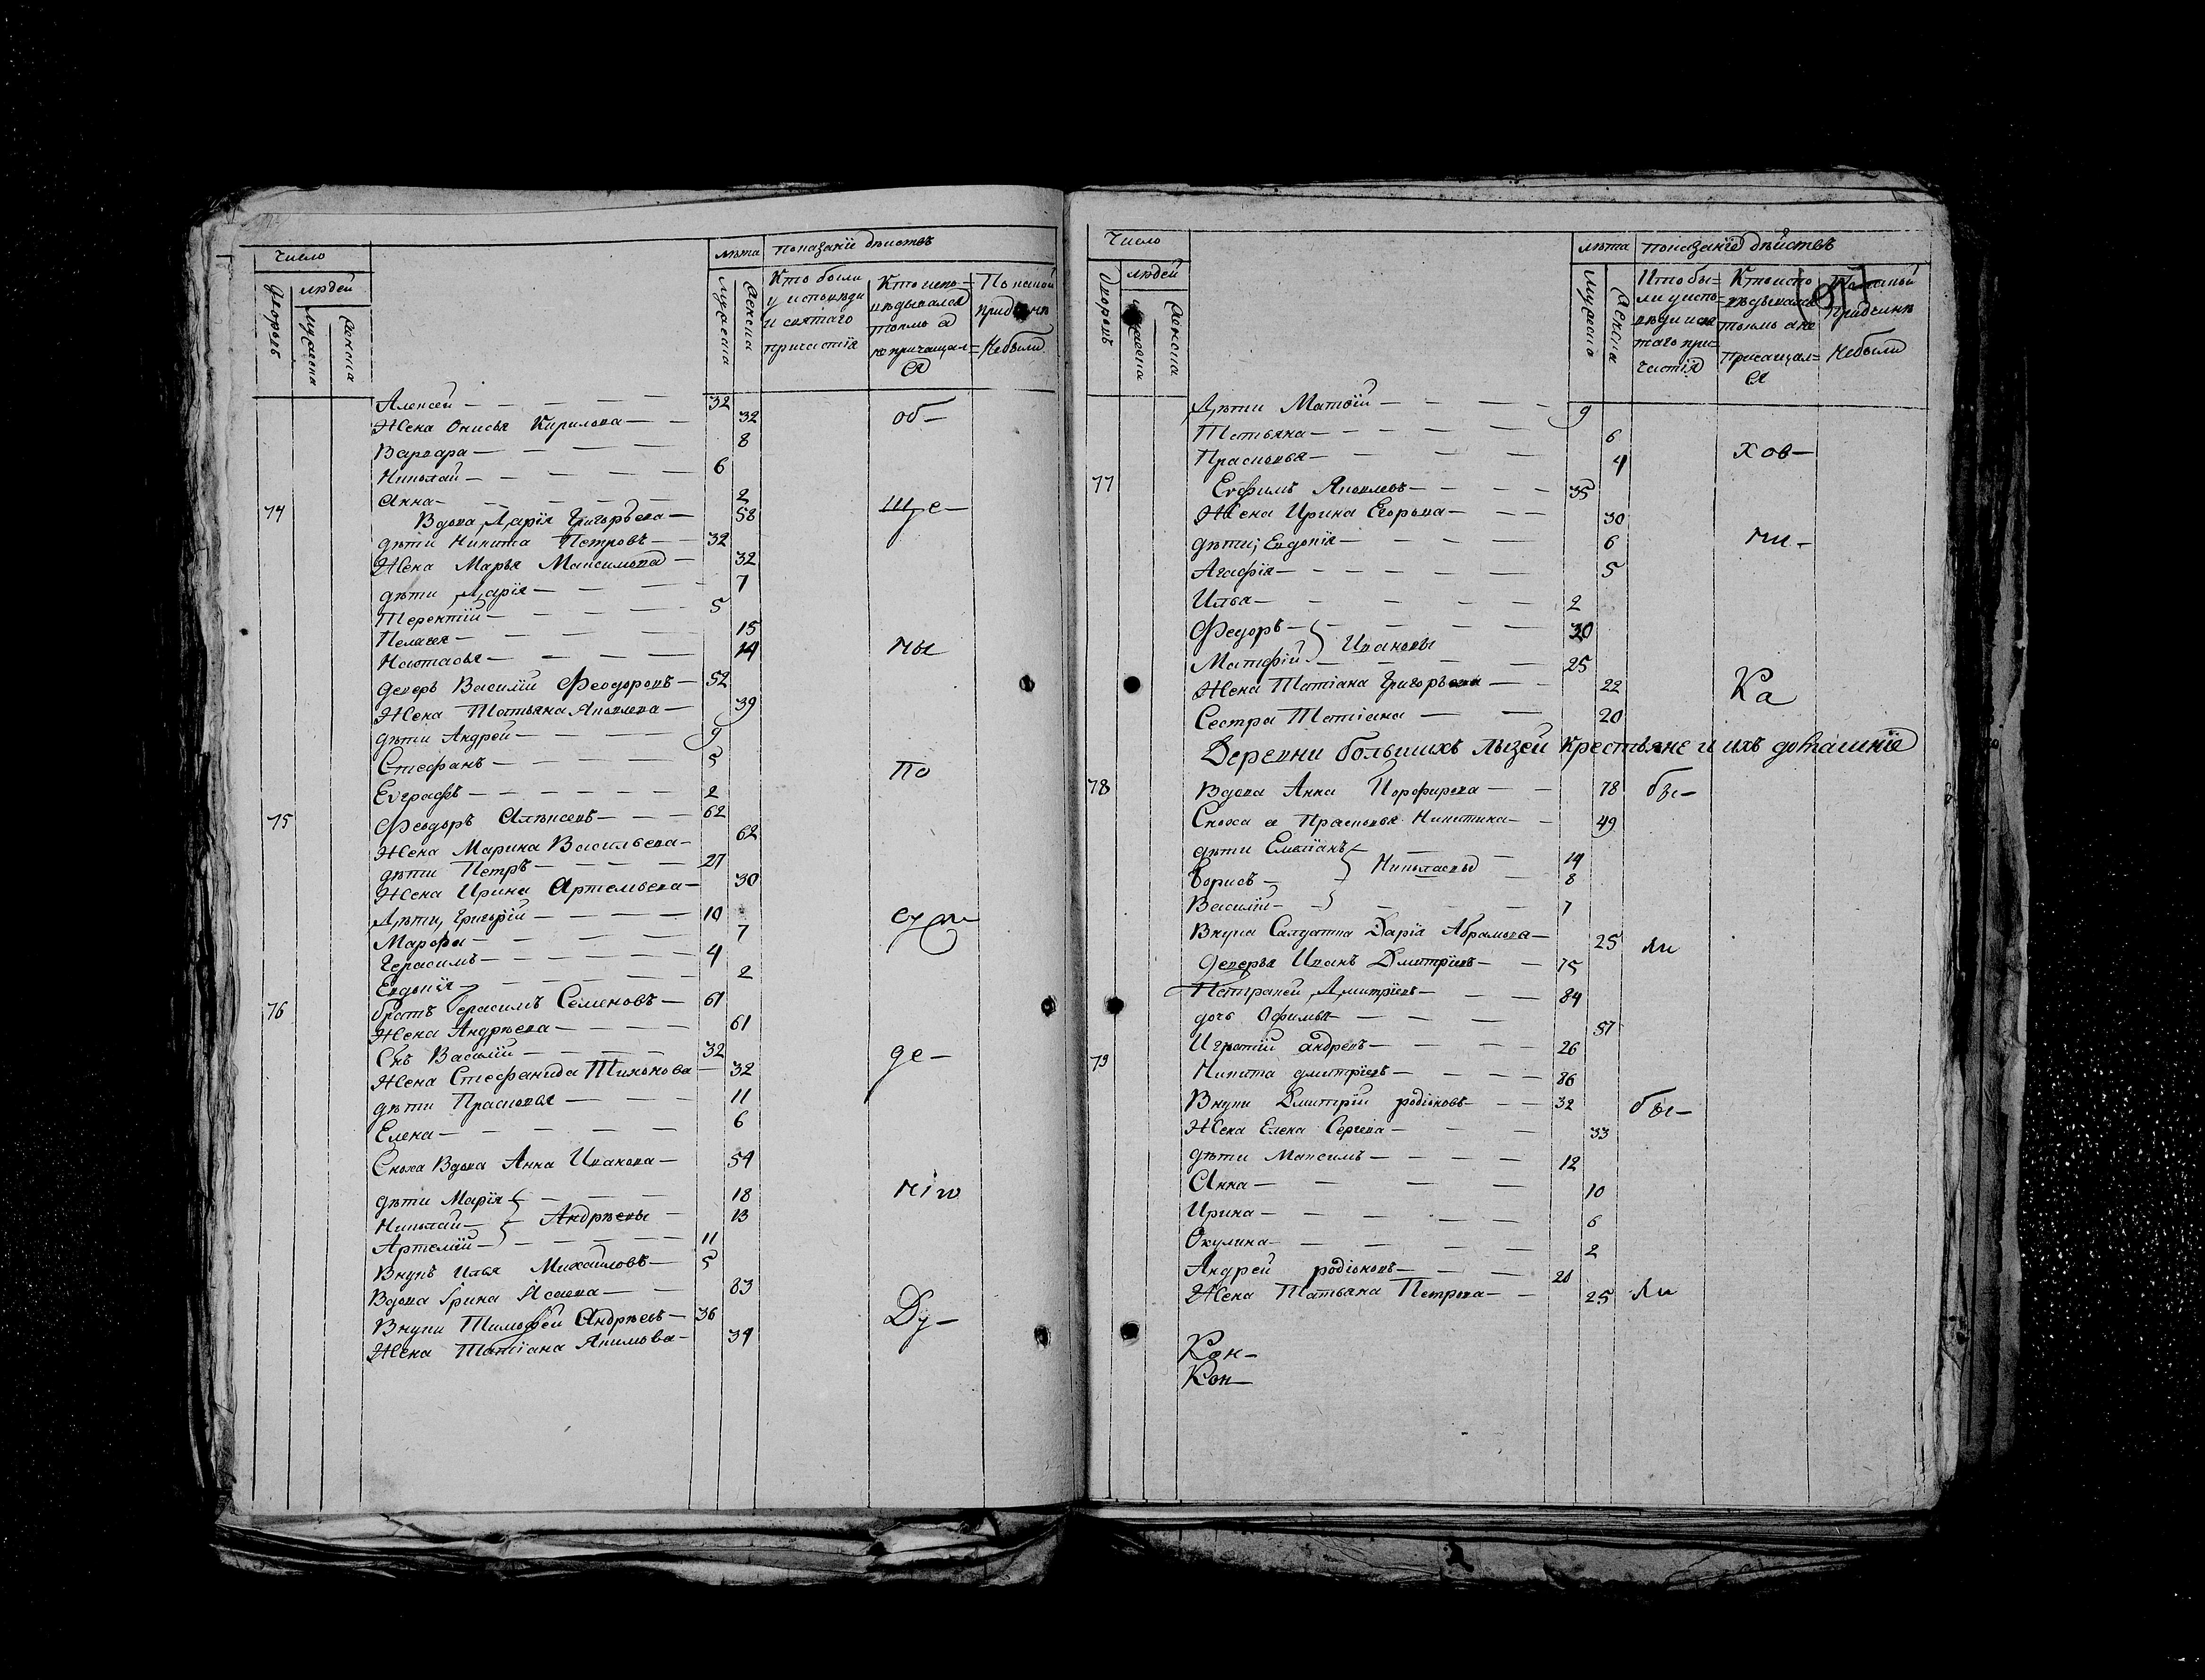 Число
лѣта показаніе дѣйствъ
людей
дворовъ
мужеска
женска
мужеска
женска
Кто были у исповѣди и святаго причастія
Кто исповѣдывался токмо а не причащался
По какой придчинѣ Небыли
Алексей — 32
Жена Онисья Кирилова — 32 об—
Варвара — 8
Николай — 6
Анна — 2
74 Вдова Дарія Григорьева — 58 ще—
дѣти Никита Петровъ — 32
Жена Марья Максимова — 32
дѣти Дарія — 7
Терентій — 5
Пелагея — 15
Настасья — 14 мы
деверь Василій Феодоровъ — 52
Жена Татьяна Яковлева — 39
дѣти Андрей — 9
Стефанъ — 5 по
Евграфъ — 2
75 Феодоръ Алексеевъ — 62
Жена Марина Васильева — 62
дѣти Петръ — 27
Жена Ирина Артемьева — 30
Дѣти, Григорій — 10
Марфа — 7
Герасимъ — 4
Евдокія — 2
76 братъ Герасимъ Семеновъ — 61
Жена Андрѣева — 61
Снъ Василій — 32 де—
Жена Стефанида Тихонова — 32
дѣти Прасковья — 11
Елена — 6
Сноха Вдова Анна Иванова — 54
дѣти Марія — 18 нію
Николай — Андрѣевы — 13
Артемій — 11
Внукъ Илья Михайловъ — 5
Вдова Ірина Исаева — 83
Внуки Тимофей Андрѣевъ — 36 Ду—
Жена Татіана Якимова — 34
Число
лѣта показаніе дѣйствъ
людей
дворовъ
мужеска
женска
мужеска
женска
Кто были у исповѣди и святаго причастія
Кто исповѣдывался токмо а не причащался
По какой придчинѣ Небыли
Дѣти Матвій — 9
Татьяна — 6
Прасковья — 4 хов—
77 Евфимъ Яковлевъ — 35
Жена Ирина Егорьва — 30
дѣти; Евдокія — 6 ни—
Агафія — 5
Илья — 2
Федоръ — 30
Матфій — Ивановы — 25
Жена Татіана Григорьева — 22 Ка
Сестра Татіана — 20
Деревни большихъ лызей крестьяне и ихъ домашніе
78 Вдова Анна Порфирева — 78 бы—
Сноха а Прасковья Никитина — 49
дѣти Емелянъ — 14
Борисъ — Николаевы — 8
Василій — 7
Внука Салдатка Дарія Абрамова — 25 ли
Деверья Иванъ Дмитріевъ — 75
Дмитріевъ — 84
дочь Офимья — 57
Игнатій андревъ — 26
79 Никита дмитріевъ — 86
Внуки Дмитрій родіоновъ — 32 бы—
Жена Елена Сергева — 33
дѣти Максимъ — 12
Анна — 10
Ирина — 6
Окулина — 2
Андрей родіоновъ —
Жена Татьяна Петрова — 25 ли
Кон—
Кон—